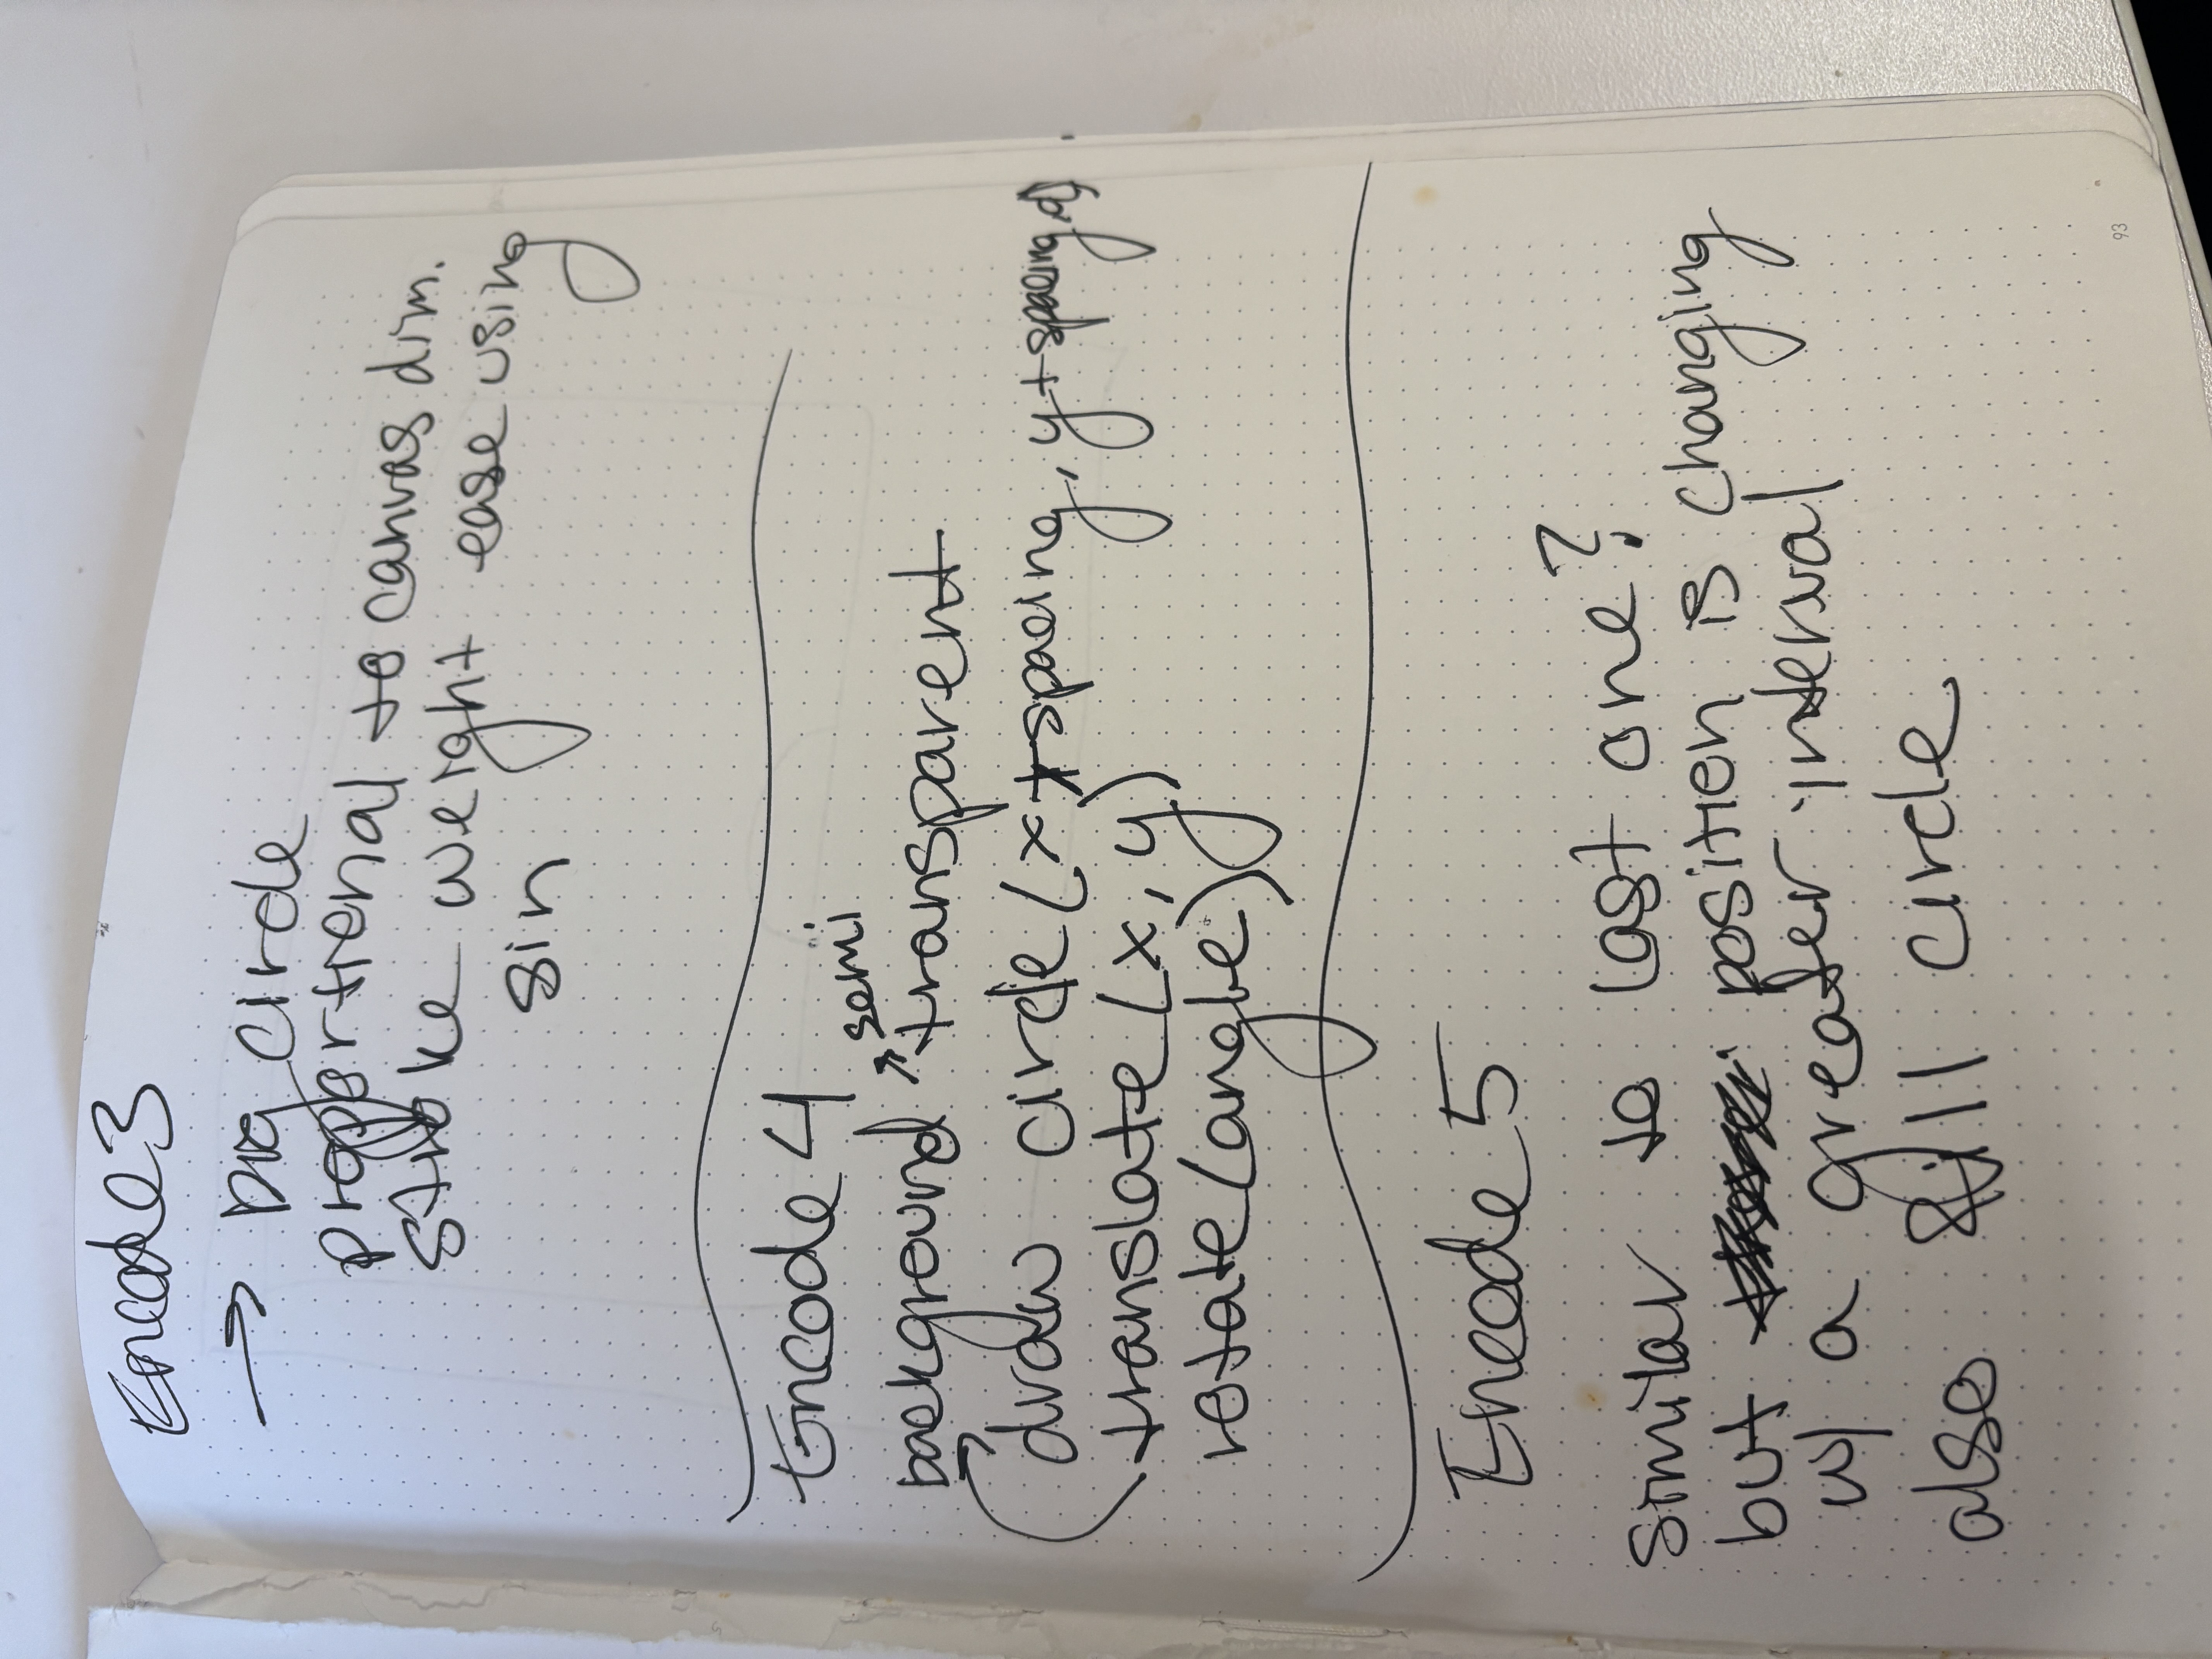 Encode3
→ big circle
proportional to canvas dim.
stroke weight ease using
sin
Encode 4
semi
background transparent
draw circle (x+spacing, y+spacing)
translate (x, y)
rotate (angle)
Encode 5
similar to last one?
but position is changing
w/ a greater interval
also fill circle
93